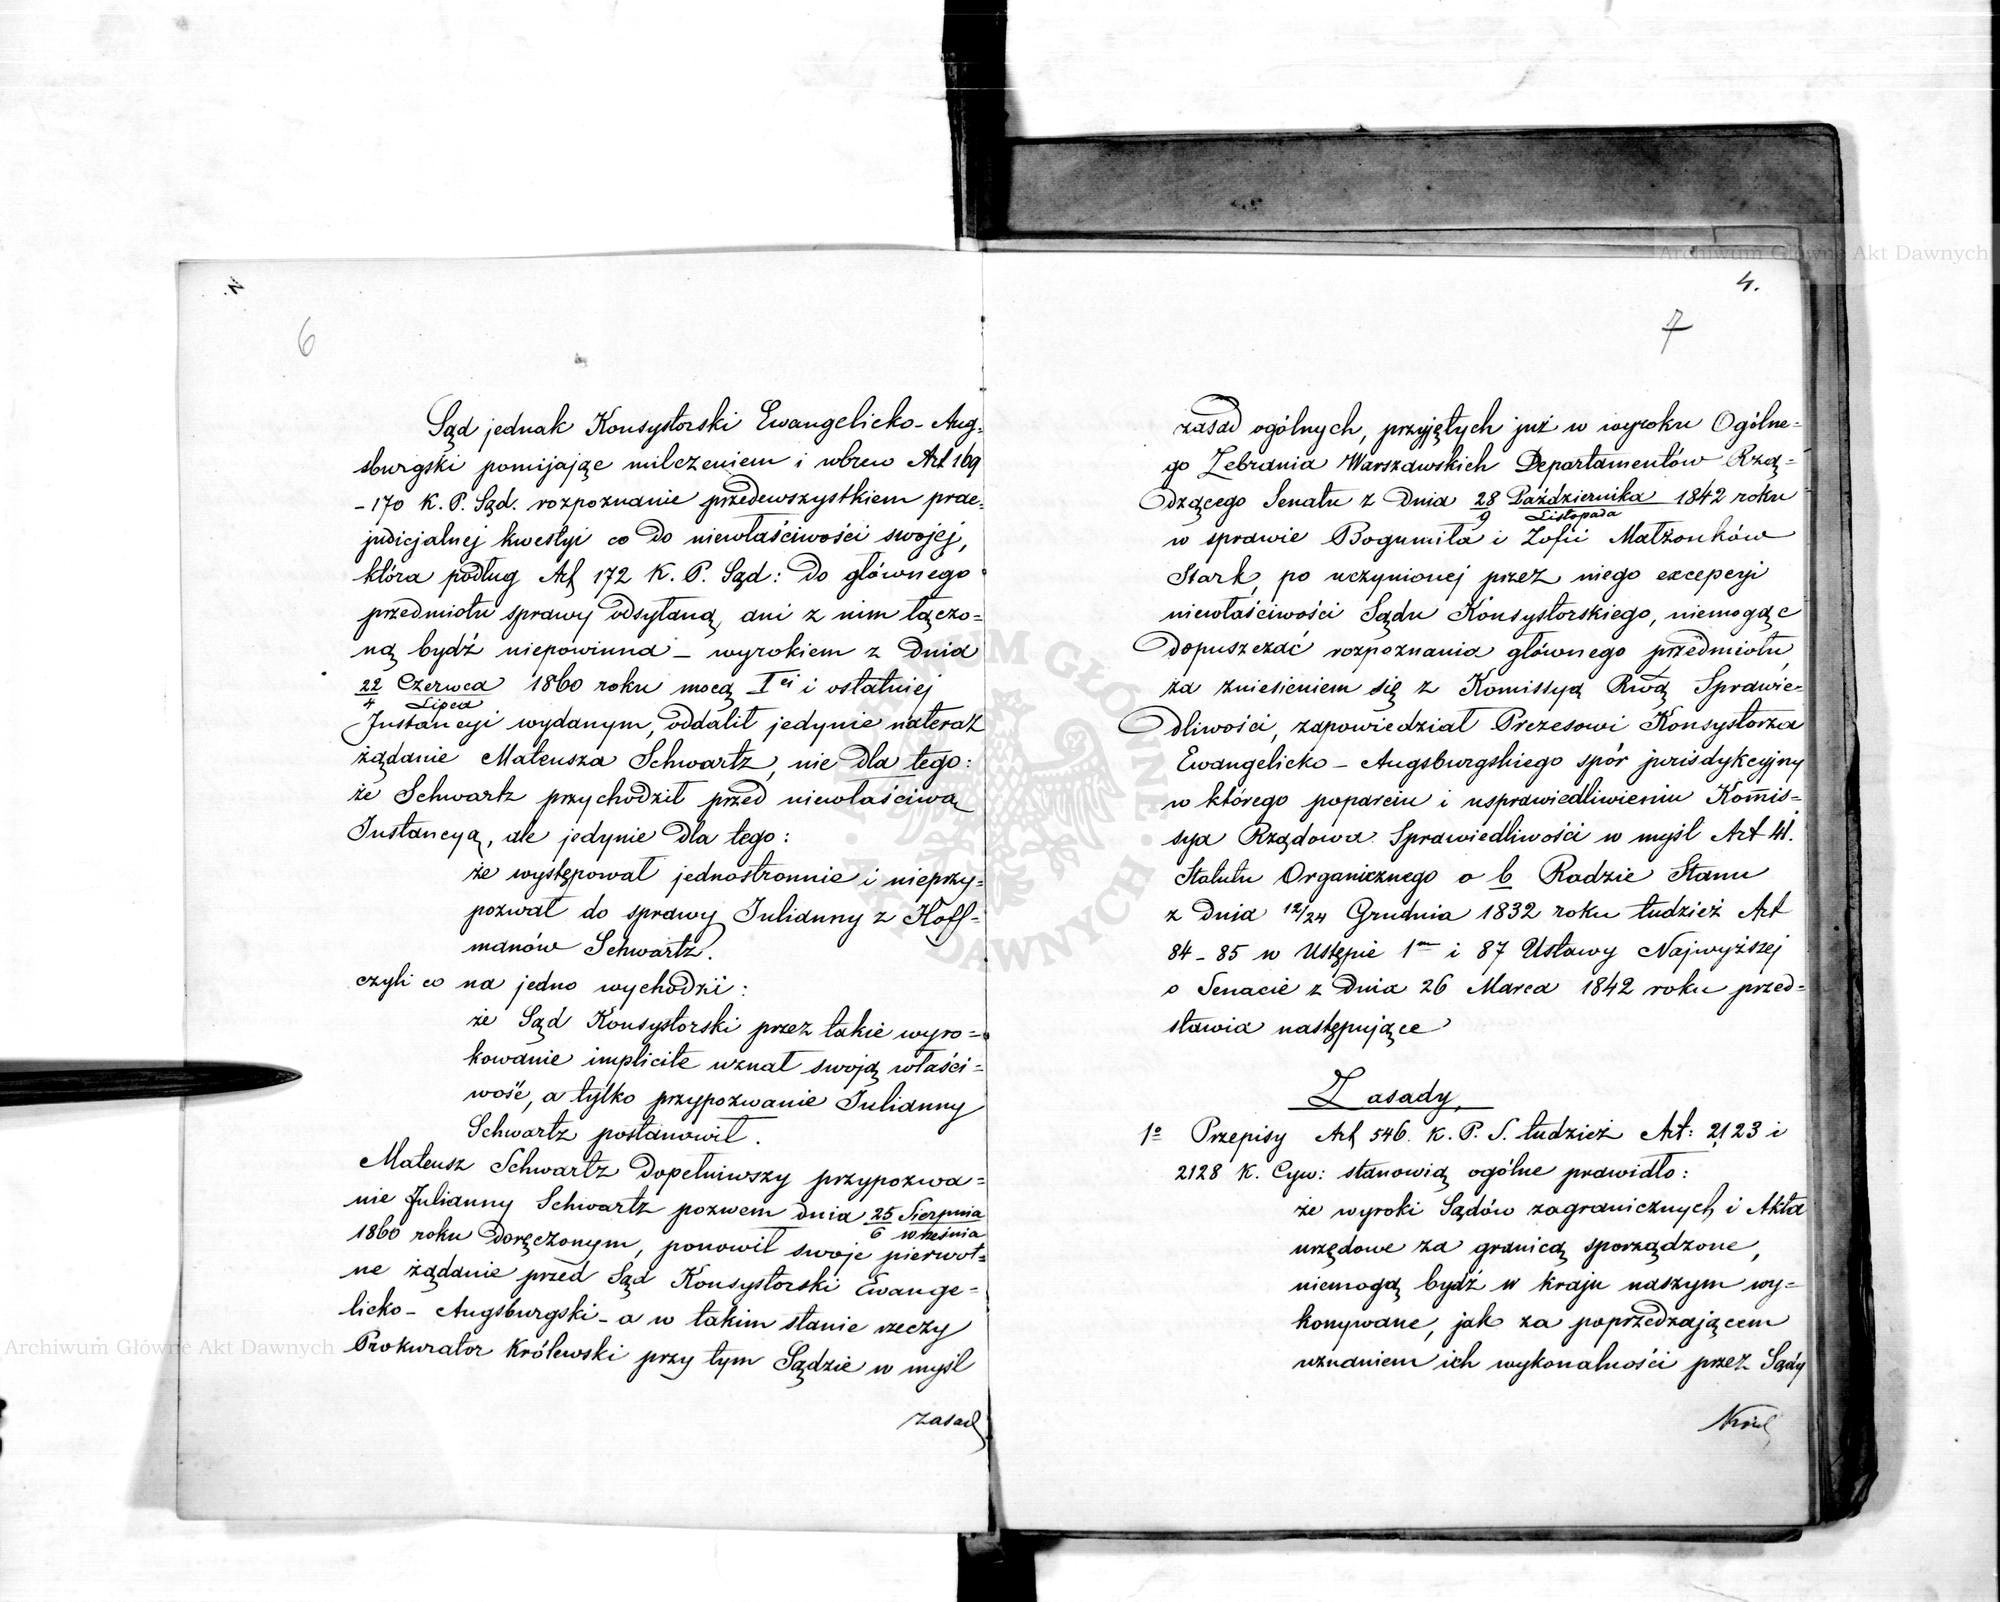 6
Sąd jednak Konsystorski Ewangelicko-Aug=
sburgski pomijając milczeniem i wbrew Art 169
-170 K. P. Sąd. rozpoznanie przedewszystkiem prae=
judicjalnej kwestyi co do niewłaściwości swojej,
która podług Art 172 K. P. Sąd: do głównego
przedmiotu sprawy odsyłaną, ani z nim łączo=
ną bydź niepowinna - wyrokiem z dnia
22 Czerwca / 4 Lipca 1860 roku mocą Iei i ostatniej
Instancyi wydanym, oddalił jedynie nateraz
żądanie Mateusza Schwartz, nie dla tego:
że Schwartz przychodził przed niewłaściwą
Instancyą, ale jedynie dla tego:
że występował jednostronnie i nieprzy=
pozwał do sprawy Julianny z Hoff=
manów Schwartz.
czyli co na jedno wychodzi:
że Sąd Konsystorski przez takie wyro=
kowanie implicite uznał swoją właści=
wość, a tylko przypozwanie Julianny
Schwartz postanowił.
Mateusz Schwartz dopełniwszy przypozwa=
nie Julianny Schwartz pozwem dnia 25 Sierpnia / 6 Września
1860 roku doręczonym, ponowił swoje pierwot=
ne żądanie przed Sąd Konsystorski Ewange=
licko-Augsburgski - a w takim stanie rzeczy
Prokurator Królewski przy tym Sądzie w myśl
zasad
4.
7
zasad ogólnych, przyjętych już w wyroku Ogólne=
go Zebrania Warszawskich Departamentów Rzą=
dzącego Senatu z dnia 28 Października / 9 Listopada 1842 roku
w sprawie Bogumiła i Zofii Małżonków
Stark, po uczynionej przez niego excepcyi
niewłaściwości Sądu Konsystorskiego, niemogąc
dopuszczać rozpoznania głównego przedmiotu,
za zniesieniem się z Komissyą Rwą Sprawie=
dliwości, zapowiedział Prezesowi Konsystorza
Ewangelicko-Augsburgskiego spór jurisdykcyjny
w którego poparciu i usprawiedliwieniu Komis=
sya Rządowa Sprawiedliwości w myśl Art 41.
Statutu Organicznego o b Radzie Stanu
z dnia 12/24 Grudnia 1832 roku tudzież Art
84-85 w Ustępie 1m i 87 Ustawy Najwyższej
o Senacie z dnia 26 Marca 1842 roku przed=
stawia następujące
Zasady,
1o Przepisy Art 546. K. P. S. tudzież Art: 2123 i
2128 K. Cyw: stanowią ogólne prawidło:
że wyroki Sądów zagranicznych i Akta
urzędowe za granicą sporządzone,
niemogą bydź w kraju naszym wy=
konywane, jak za poprzedzającem
uznaniem ich wykonalności przez Sądy
Archiwum Główne Akt Dawnych
Archiwum Główne Akt Dawnych
ARCHIWUM GŁÓWNE AKT DAWNYCH